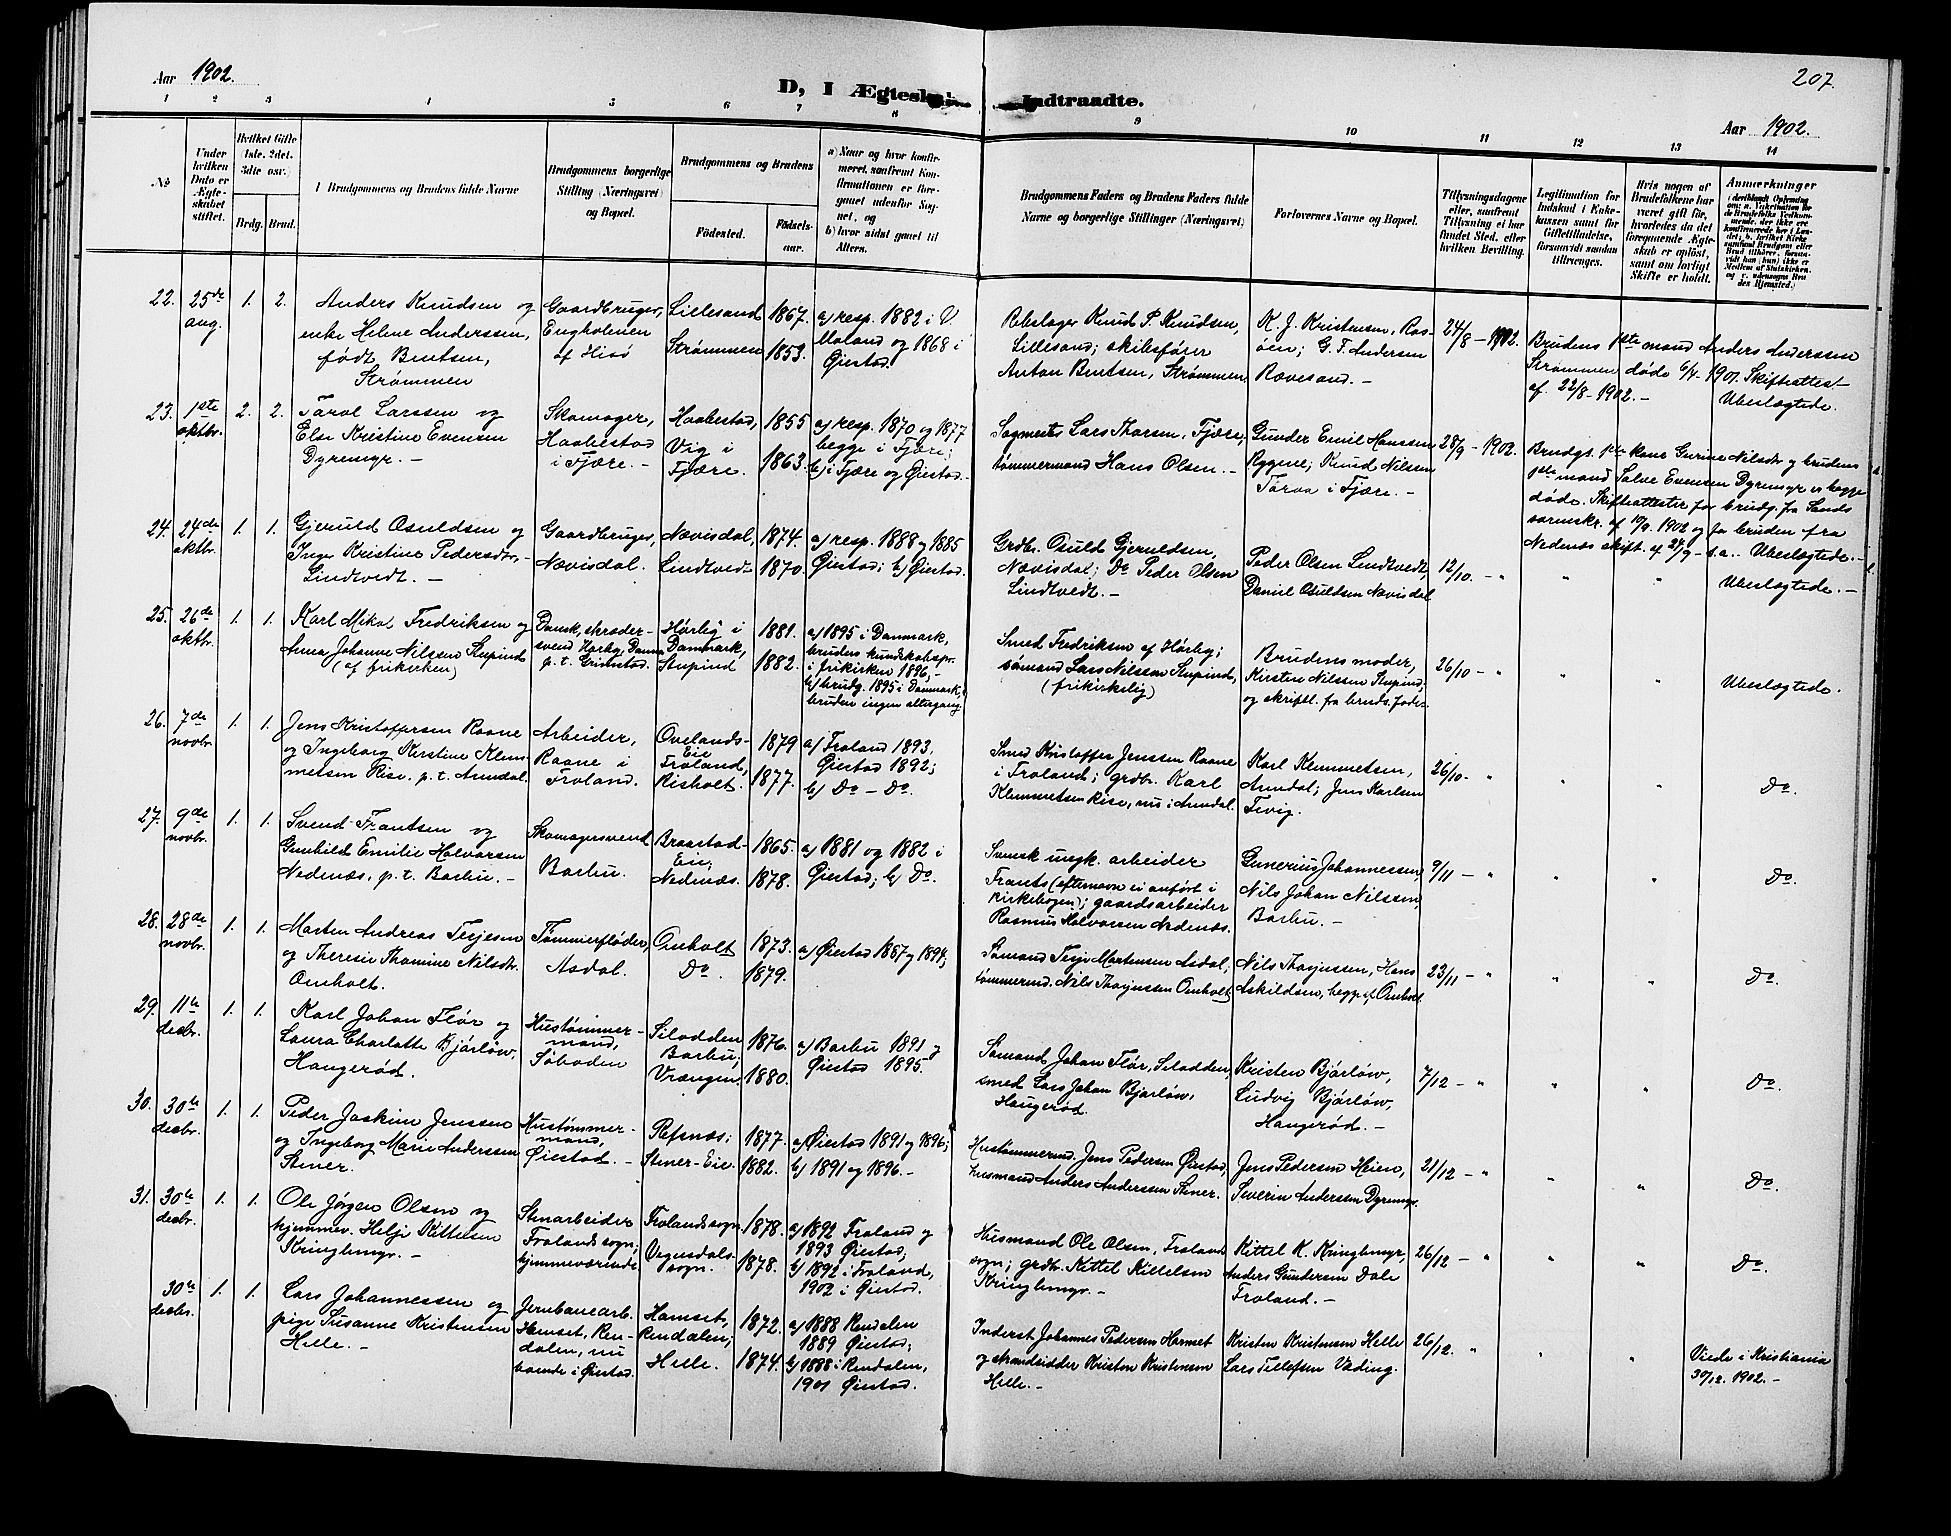 Aar 1902.
D, I Ægtesk
Indtraadte.
207.
Aar 1902.
1 2 3 4 5 6 7 8 9 10 11 12 13 14
№
Under hvilken Dato er Ægteskabet stiftet.
Hvilket Gifte (1ste. 2det. 3die osv.)
Brdg. Brud.
Brudgommens og Brudens fulde Navne
Brudgommens borgerlige Stilling (Næringsvei) og Bopæl.
Brudgommens og Brudens
Födested.
Födselsaar.
a) Naar og hvor konfirmeret, samt om Konfirmationen er foregaaet udenfor Sognet, og
b) hvor sidst gaaet til Alters.
Brudgommens Faders og Brudens Faders fulde Navne og borgerlige Stillinger (Næringsvei)
Forlovernes Navne og Bopæl.
Tillysningsdagene eller, saafremt Tillysning ei har fundet Sted, efter hvilken Bevilling.
Legitimation for Indskud i Enkekassen samt for Giftetilladelse, forsaavidt saadan tiltrænges.
Hvis nogen af Brudefolkene har været gift för, hvorledes da det foregaaende Ægteskab er oplöst, samt om lovligt Skifte er holdt.
Anmærkninger
22. 25de aug. 1. 2.
Anders Knudsen og
enke Helene Anderssen,
født Bentsen,
Strømmen
Gaardbruger,
Engholmen
af Hisö
Lillesand
Strømmen
1867.
1853.
a) resp. 1882 i V.
Moland og 1868 i
Øiestad.
Rebslager Knud P. Knudsen,
Lillesand; skibsfører
Anton Bentsen, Strømmen
K. J. Kristensen, Ros-
øen; G. T. Andersen
Rævesand. —
24/8 – 1902.
Brudens 1ste mand Anders Anderssen
Strømmen døde 6/4 – 1901. Skifteattest
af 22/8 – 1902. —
Ubeslægtede.
23. 1ste oktbr. 2. 2.
Tarol Larssen og
Else Kristine Evensen
Dyremyr. —
Skomager,
Haabestad
i Fjære. —
Haabestad,
Vig i
Fjære.
1855
1863.
a) resp. 1870 og 1877
begge i Fjære;
b) i Fjære og Øiestad.
Sagmester Lars Thorsen, Fjære;
tømmermand Hans Olsen. —
Gunder Emil Hanssen
Rygene; Knud Nilssen
Tarva i Fjære. —
28/9 – 1902.
Brudgs. 1ste kone Gurine Nilsdtr og brudens
1ste mand Salve Evensen Dyremyr er begge
døde. Skifteattester for brudg. fra Sands
sorenskr. af 19/9. 1902 og for bruden fra
Nedenes skift. af 27/9 – s.a. Ubeslægtede. —
24. 24de oktbr. 1. 1.
Gjeruld Osuldsen og
Inger Kristine Pedersdtr,
Lindtvedt. —
Gaardbruger,
Nævisdal.
Nævisdal,
Lindtvedt
1874.
1870.
a) resp. 1888 og 1885
Øiestad; b) Øiestad.
Grdbr. Osuld Gjeruldsen,
Nævisdal; Do Peder Olsen
Lindtvedt. —
Peder Olsen Lindtvedt,
Daniel Osuldsen Nævisdal
12/10. – "
" "
Ubeslægtede. —
25. 26de oktbr. 1. 1.
Karl Mikal Fredriksen og
Anna Johanne Nilssen Stupind
(af frikirken)
Dansk, skræder-
svend Hørby, Danm.
p. t. Grimstad.
Hørby i
Danmark,
Stupind
1881.
1882.
a) 1895 i Danmark,
brudens kundskabspr.
i frikirken 1896, –
b) brudg. 1895 i Danmark,
bruden ingen altergang.
Smed Fredriksen af Hørby;
sømand Lars Nilssen Stupind,
(frikirkelig)
Brudens moder,
Kirsten Nilssen Stupind;
og skriftl. fra bruds. fader.
26/10 – "
" "
Ubeslægtede.
26. 7de novbr. 1. 1.
Jens Kristoffersen Raane
og Ingeborg Kirstine Klem-
metsen Rise. p. t. Arendal.
Arbeider,
Raane i
Froland.
Ovelands-
Eie
Froland,
Risholt.
1879
1877.
a) Froland 1893.
Øiestad 1892;
b) Do – Do.
Smed Kristoffer Jenssen Raane
i Froland; grdbr. Karl
Klemmetsen Rise, nu i Arendal.
Karl Klemmetsen,
Arendal; Jens Karlsen
Fevig.
26/10 – "
" "
Do.
27. 9de novbr. 1. 1.
Svend Frantsen og
Gunhild Emilie Halvorsen
Nedenæs, p. t. Barbu. —
Skomagersvend
Barbu.
Braastad-
Eie;
Nedenæs.
1865.
1878.
a) 1881 og 1882 i
Øiestad; b) Do.
Svensk ungk. arbeider
Frants (efternavn ei anført i
kirkebogen); gaardsarbeider
Rasmus Halvorsen Nedenæs.
Gunerius Johannessen,
Nils Johan Nilssen,
Barbu. —
9/11 – "
" "
Do.
28. 28de novbr. 1. 1.
Marten Andreas Terjesen
og Theresie Thomine Nilsdtr.
Omholt.
Tømmerfløder,
Asdal.
Omholt
Do.
1873.
1879.
a) Øiestad 1887 og 1894;
Sømand Terje Martensen Asdal;
tømmermd. Nils Thorjussen Omholt
Nils Thorjussen, Hans
Askildsen, begge af Omholt.
23/11 – "
" "
Do.
29. 11te decbr. 1. 1.
Karl Johan Flør og
Laura Charlotte Bjørløw,
Haugerød.
Hustømmer-
mand,
Søboden
Silodden
Barbu;
Vrængen,
1876.
1880.
a) Barbu 1891 og
Øiestad 1895.
Sømand Johan Flør, Silodden,
smed Lars Johan Bjørløw,
Haugerød.
Kristen Bjørløw,
Ludvig Bjørløw,
Haugerød. —
7/12 – "
" "
Do.
30. 30te decbr. 1. 1.
Peder Joakim Jenssen
og Ingeborg Marie Anderssen
Stener.
Hustømmer-
mand,
Øiestad. —
Refsnæs;
Stener-Eie.
1877.
1882.
a) Øiestad 1891 og 1896;
b) 1891 og 1896. –
Hustømmermd. Jens Pedersen Øiestad,
husmand Anders Anderssen Stener.
Jens Pedersen Heien,
Severin Andersen Dyremyr.
21/12 – "
" "
Do.
31. 30te decbr. 1. 1.
Ole Jørgen Olsen og
hjemmev. Helje Kittelsen
Kringlemyr. —
Stenarbeider
Frolands sogn,
hjemmeværende
Frolands sogn
Vegusdals-
sogn.
1878.
1878.
a) 1892 Froland og
1893 Øiestad;
b) 1892 i Froland,
1902 i Øiestad.
Husmand Ole Olsen, Frolands
sogn; grdbr. Kittel Kittelsen
Kringlemyr. —
Kittel K. Kringlemyr,
Anders Gundersen Dale
Froland. —
26/12 – "
" "
Do.
30te decbr. 1. 1.
Lars Johannessen og
pige Susanne Kristensen
Helle. —
Jernbanearb.
Hamset, Ren-
dalen, nu
boende i Øiestad.
Hamset,
Rendalen;
Helle.
1872.
1874.
a) 1888 Rendalen
1889 Øiestad;
b) 1888 i Rendalen,
1901 Øiestad.
Inderst Johannes Pedersen Harmset
og strandsidder Kristen Kristensen
Helle. —
Kristen Kristensen Helle
Lars Tellefsen Vading.
26/12. "
" "
Viede i Kristiania
30/12. 1902. —